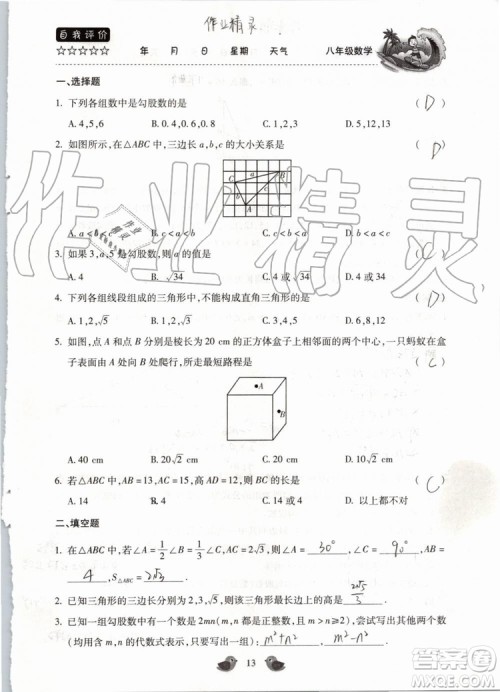 作业精灵
自我评价
☆☆☆☆☆ 年 月 日 星期 天气 八年级数学
一、选择题
1. 下列各组数中是勾股数的是 ( D )
A. 4,5,6 B. 0.4,0.6,0.8 C. 1,2,3 D. 5,12,13
2. 如图所示,在△ABC中,三边长a,b,c的大小关系是 ( D )
C a B
b c
A
A. a<b<c B. c<a<b D. b<a<c
3. 如果3,a,5是勾股数,则a的值是
A. 4 B. √34 C. 4或√34 D. 4或34
4. 下列各组线段组成的三角形中,不能构成直角三角形的是
A. 1,2,√5 B. 3,4,5
5. 如图,点A和点B分别是棱长为20 cm的正方体盒子上相邻面的两个中心,一只蚂蚁在盒
子表面由A处向B处爬行,所走最短路程是 ( C )
A
B
A. 40 cm B. 20√2 cm C. 20 cm D. 10√2 cm
6. 若△ABC中,AB=13,AC=15,高AD=12,则BC的长是 ( C )
A. 14 B. 4 C. 14或4 D. 以上都不对
二、填空题
1. 在△ABC中,若∠A=1/2∠B=1/3∠C,AC=2√3,则∠A= 30° ,∠C= 90° ,AB=
4 ,S△ABC= 2√3 .
2. 已知三角形的三边长分别为2,3,√5,则该三角形最长边上的高是 2√5/3 .
3. 已知一组勾股数中有一个数为2mn(m,n都是正整数,且m>n≥2),尝试写出其他两个数
(均用含m,n的代数式表示,只需写出一组): m²+n² 、 m²-n² .
13
作业精灵
作业
精灵
答案圈
MXQE.COM